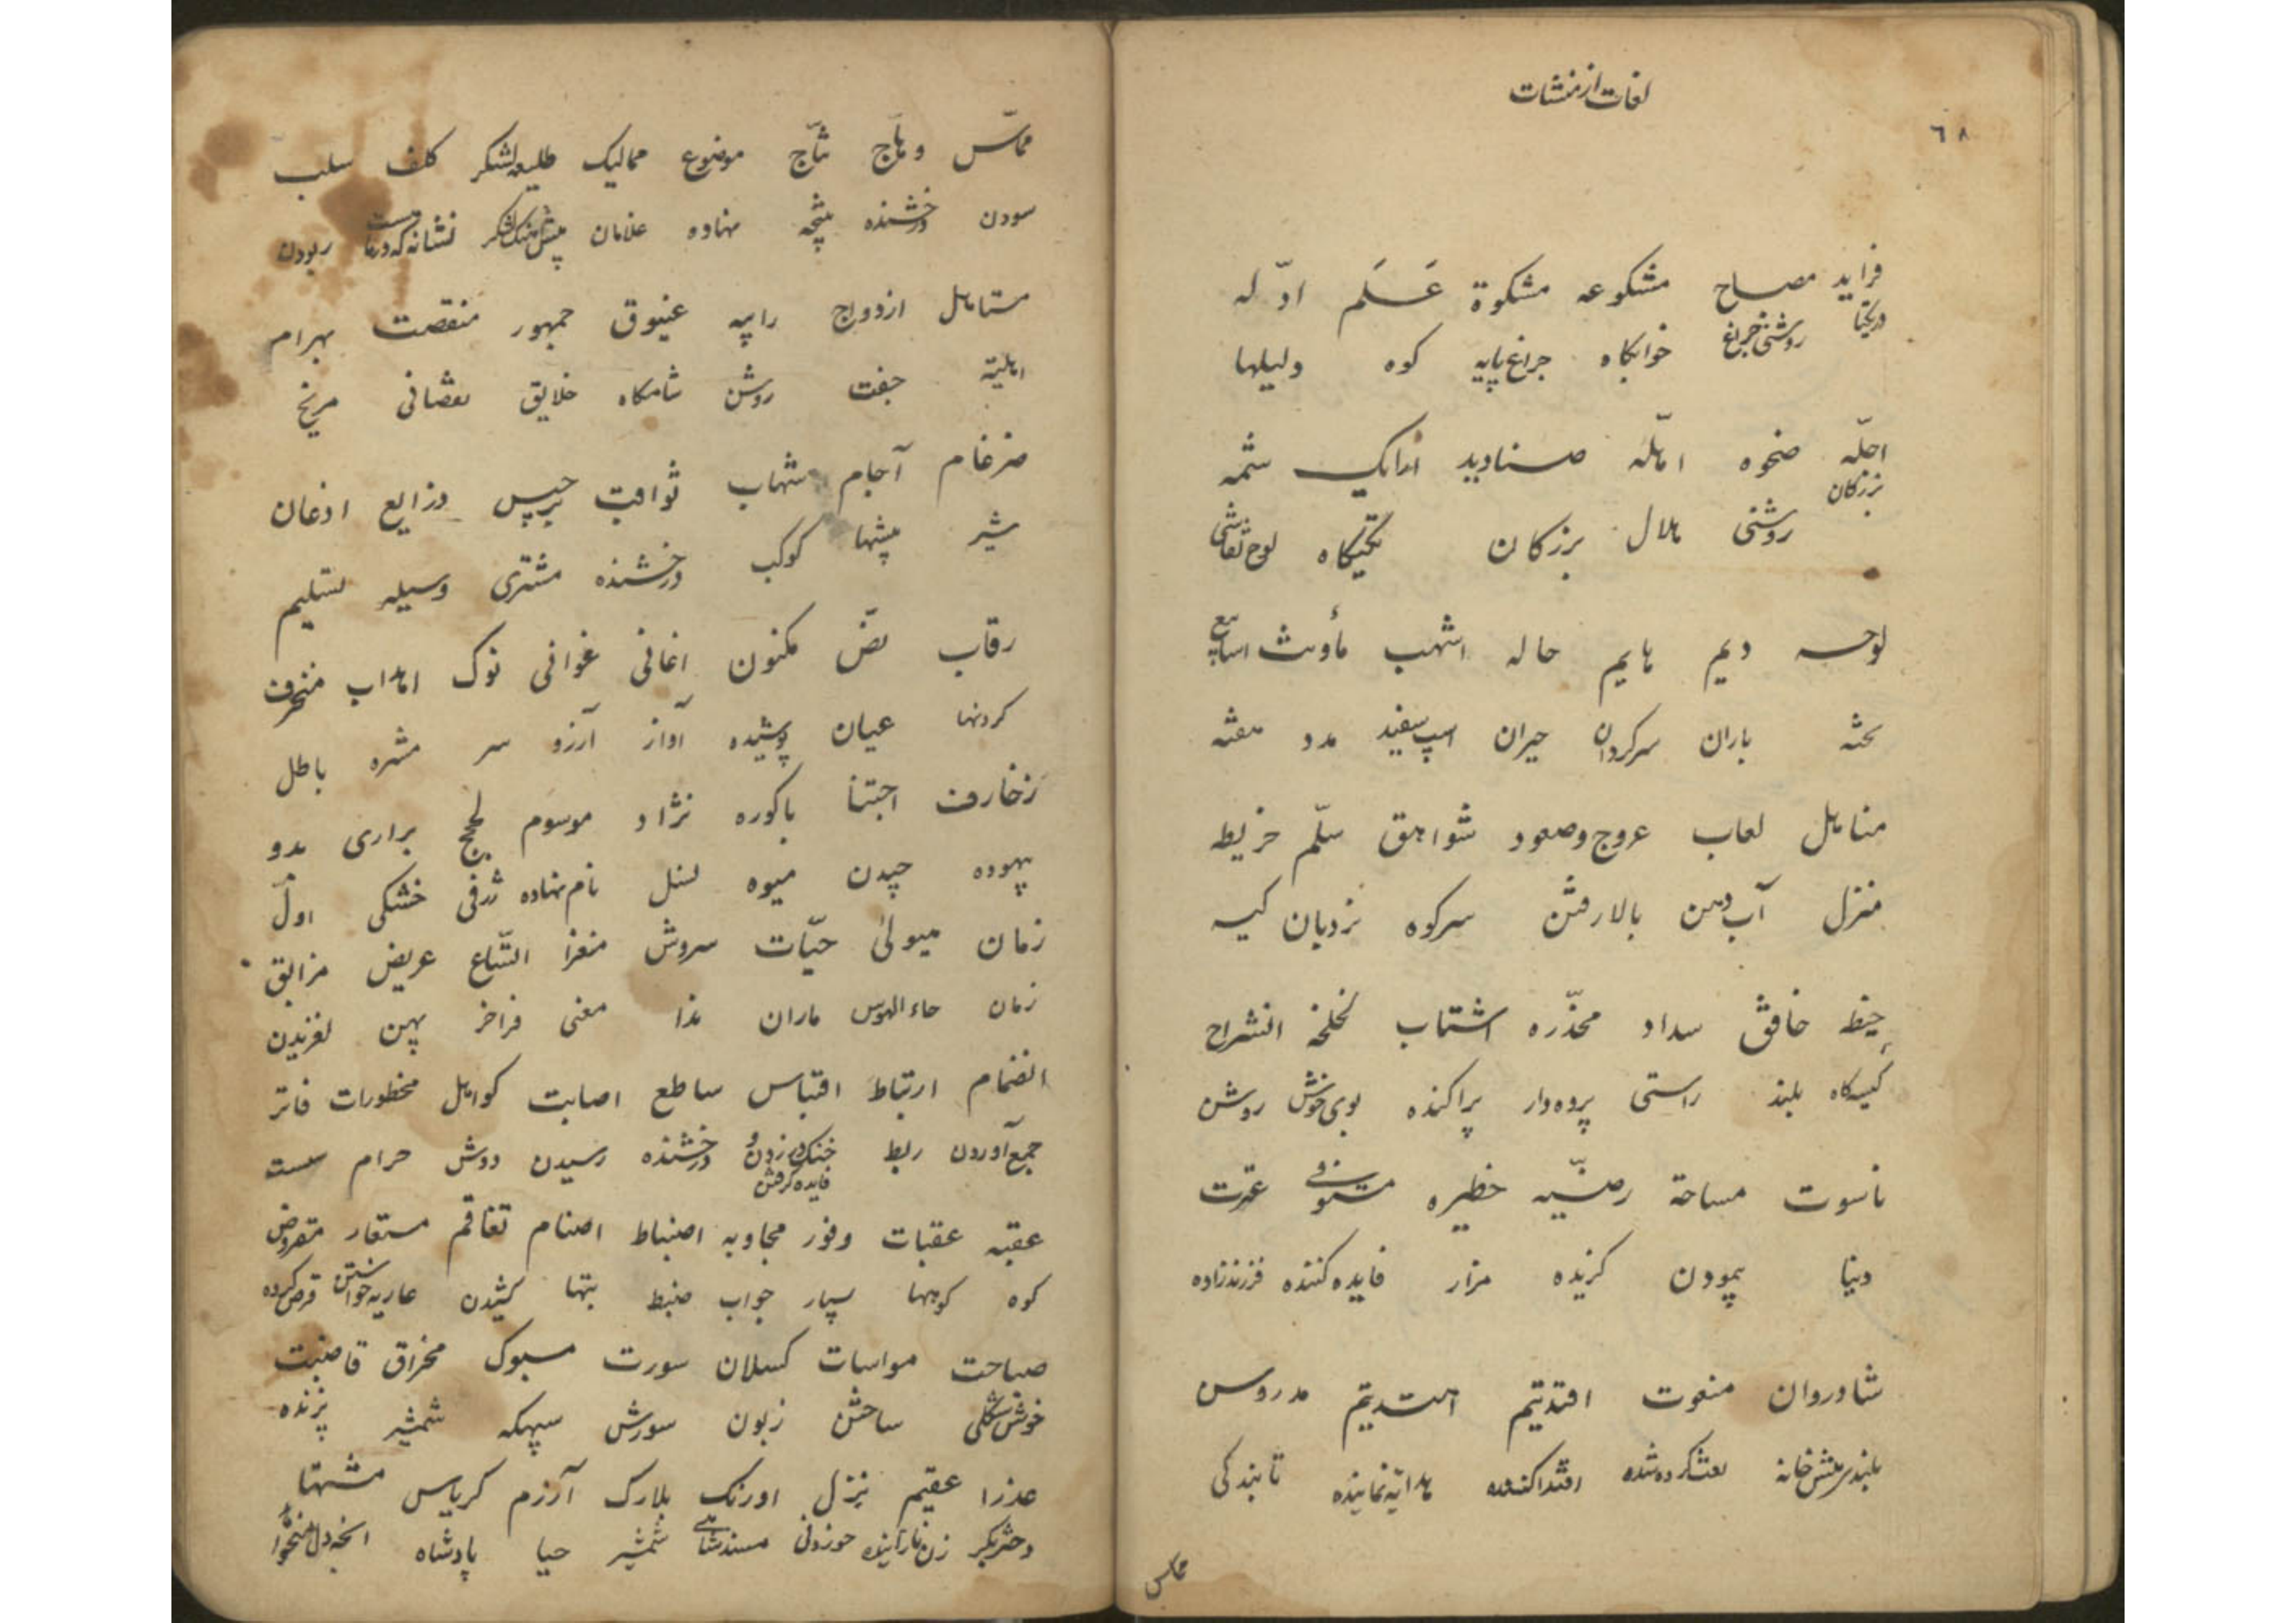 لغات از منشات
٦٨
فراید مصباح مشکوعه مشکوة عَلَم ادّله
دریکتا روشنی چراغ خوابگاه چراغ پایه کوه دلیلها
اجلّه ضحوه صنادید ارایک شمه
بزرکان روشنی هلال بزرکان تکیکاه لوح نقاشی
لوحه دیم هایم حاله اشهب
باران سرکردان حیران اسپ سفید مدد
مناهل لعاب عروج وصعود شواهق سلّم خریطه
منزل آب دهن بالا رفتن سرکوه نردبان کیسه
خافق سداد مخدّره لخلخه انشراح
بلند راستی پرده‌دار پراکنده بوی خوش روشن
ناسوت مساحة رضیّه حظیره عترت
دینا پیمودن کزیده مزار فایده کننده فرزندزاده
شادروان منعوت اقتدیتم اهتدیتم مدروس
اقتدا کننده تابندکی
مماسّ
مماسّ وهّاج ثجّاج موضوع ممالیک طلیعه لشکر کلف سلب
سودن درخشنده نهاده غلامان ربودن
ازدواج عیّوق جمهور منقصت بهرام
جفت روش خلایق نقصانی مریخ
ضرغام آجام شهاب ثواقب برجیس ذرایع اذعان
شیر بیشها کوکب درخشنده مشتری وسیله تسلیم
رقاب نصّ مکنون اغانی غوانی نوک اهداب منحرف
کردنها عیان پوشیده آواز آرزو سر مژه باطل
زخارف اجتنا باکوره نژاد موسوم لجج براری بدو
بیهوده چیدن میوه نسل نام نهاده ژرفی خشکی اولّ
زمان هیولیٰ حیّات سروش مغزا اتّساع عریض مزالق
زمان ماران معنی فراخ پهن لغزیدن
انضمام ارتباط اقتباس ساطع اصابت کواهل محظورات فاتر
جمع آوردن ربط درخشنده رسیدن دوش حرام سست
فایده گرفتن
عقبه عقبات وفور مجاوبه انضباط اصنام تفاقم مستعار مقروض
کوه کوهها بسیار جواب ضبط بتها کشیدن عاریه خواستن قرض کرده
صباحت مواسات کسلان سورت مسبوک مخراق قاضبت
خوش شکلی ساختن زبون سورش سپیکه شمشیر برنده
عذرا عقیم نزل اورنک بلارک آزرم کریاس مشتها
دختر بکر زن نازاینده خوردنی مسند شاهی شمشیر حیا پادشاه